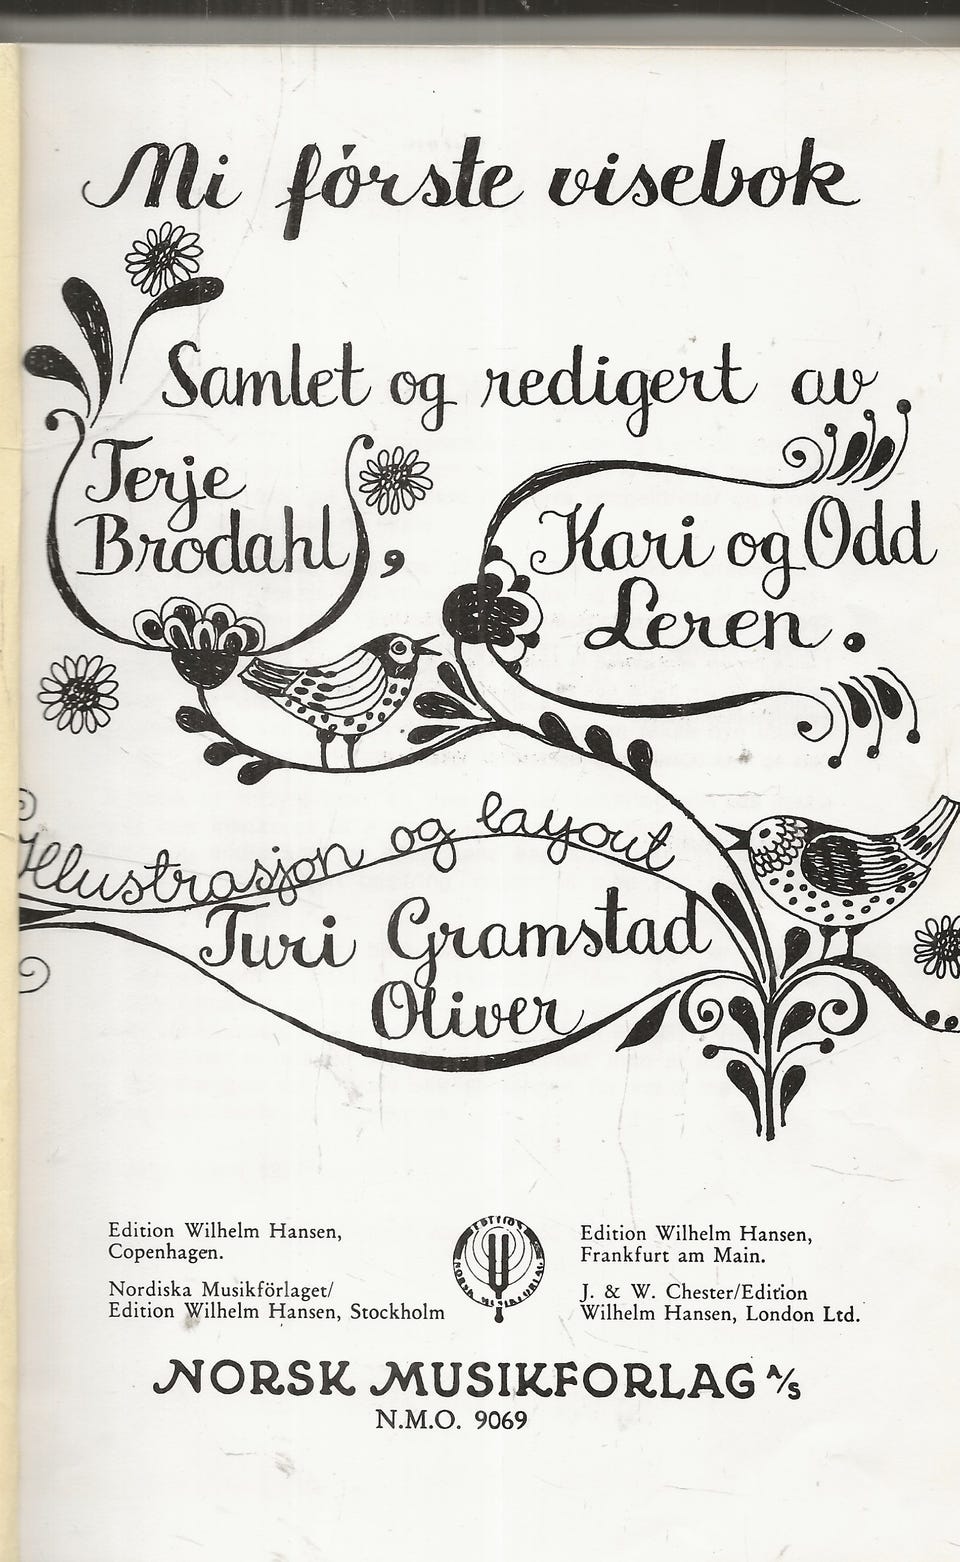 Mi første visebok
Samlet og redigert av
Terje
Brodahl,
Kari og Odd
Leren.
Illustrasjon og layout
Turi Gramstad
Oliver
Edition Wilhelm Hansen,
Copenhagen.
Nordiska Musikförlaget/
Edition Wilhelm Hansen, Stockholm
EDITION
NORSK MUSIKFORLAG
Edition Wilhelm Hansen,
Frankfurt am Main.
J. & W. Chester/Edition
Wilhelm Hansen, London Ltd.
NORSK MUSIKFORLAG A/S
N.M.O. 9069